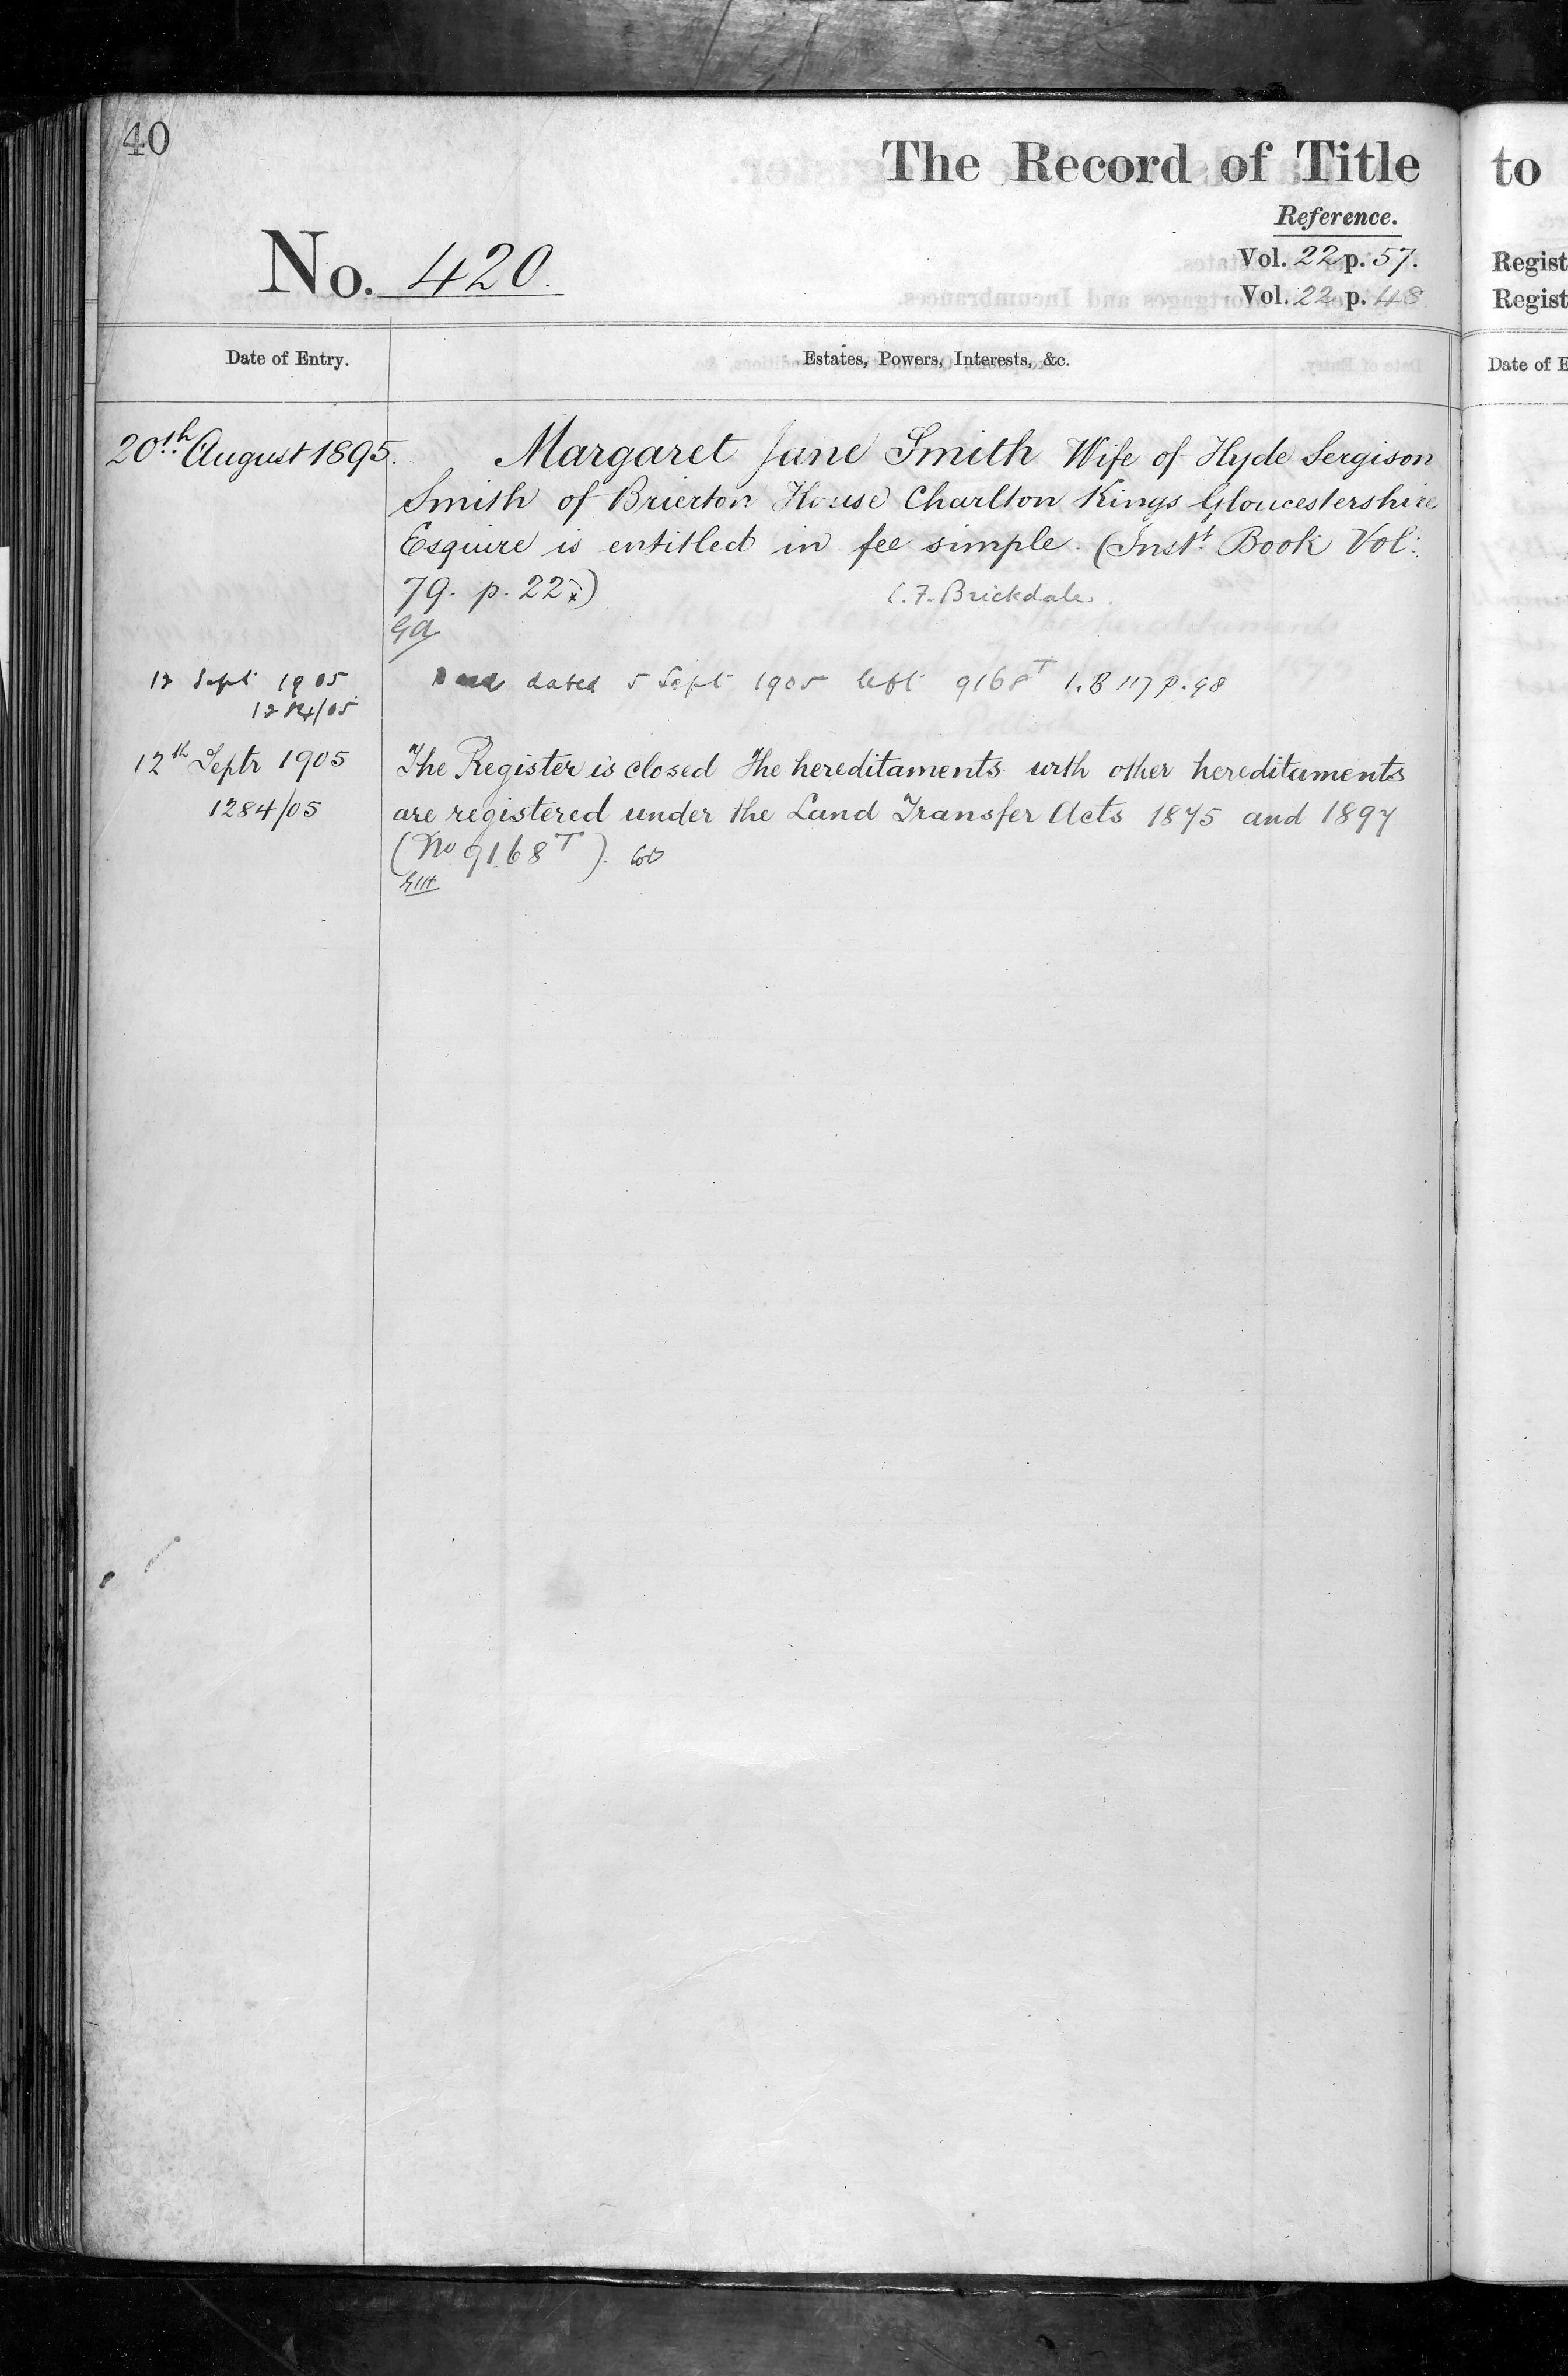 40
The Record of Title
Reference.
No. 420.
Vol. 22 p. 57.
Vol. 22 p. 48
Date of Entry.
Estates, Powers, Interests, &c.
20th August 1895.
Margaret Jane Smith Wife of Hyde Sergison
Smith of Brierton House Charlton Kings Gloucestershire
Esquire is entitled in fee simple. (Inst. Book Vol:
79. p. 22)
C. F. Brickdale.
GA
12 Sept 1905
1284/05
Deed dated 5 Sept 1905 left 9168T I.B 117 p. 98
12th Septr 1905
1284/05
The Register is closed The hereditaments with other hereditaments
are registered under the Land Transfer Acts 1875 and 1897
(No 9168T).
to
Regist
Regist
Date of E